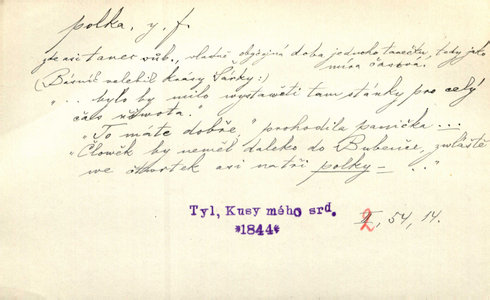 polka, y, f.
zde asi tanec vůb., vlastně obyčejná doba jednoho tanečku, tedy jako
míra časová.
(Básník velebil krásy Šárky:)
"... bylo by milo wystawěti tam stánky pro celý
čas žiwota."
"To máte dobře," prohodila panička ...
"Člowěk by neměl daleko do Bubenče, zwláště
we čtwrtek asi na tři polky — ..."
Tyl, Kusy mého srd.
*1844*
2, 54, 14.